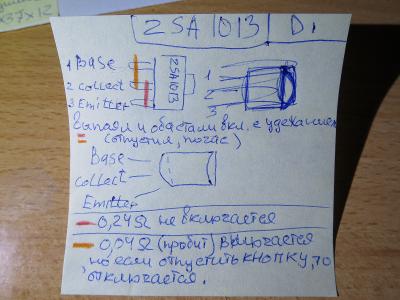 37x12
2SA1013 D.
1 Base
2 collect
3 Emitter
2SA1013
1
2
3
Выпаял и обастали вкл. с удежанием
(отпустил, погас)
Base
collect
Emitter
0,24Ω не включается
0,04Ω (пробит) включается
но если отпустить кнопку, то
отключается.